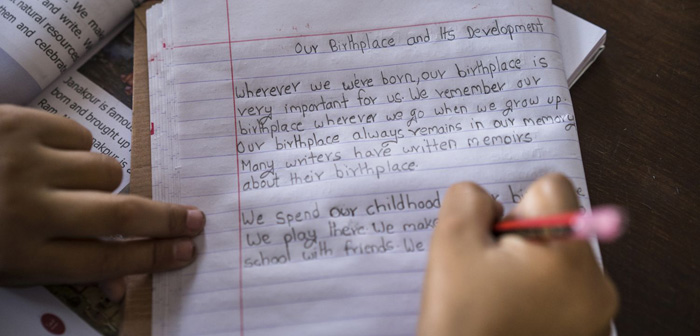 We ma
and write. W
natural resources
them and celebra
Janakpur is famou
born and brought up
Janakpur is
11
Our Birthplace and Its Development
Wherever we were born, our birthplace is
very important for us. We remember our
birthplace wherever we go when we grow up.
Our birthplace always remains in our memory
Many writers have written memoirs
about their birthplace.
We spend our childhood
We play there. We make
school with friends. We